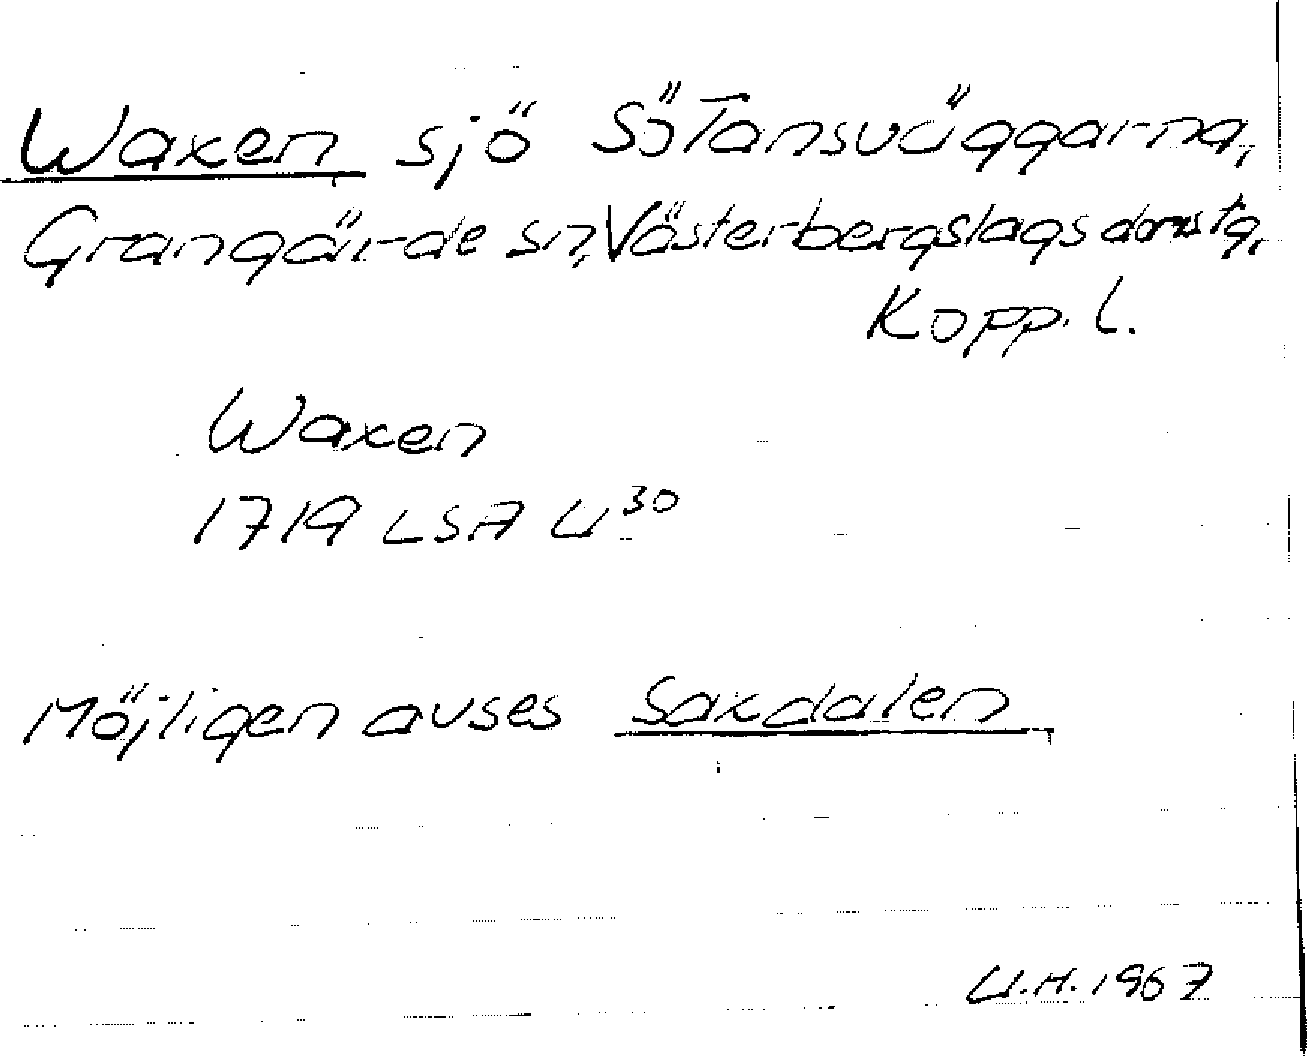 Waxen sjö SÖ Tansväggarna,
Grangärde sn, Västerbergslags domstg,
Kopp. l.
Waxen
1719 LSA U³⁰
Möjligen avses Saxdalen
U.H. 1967